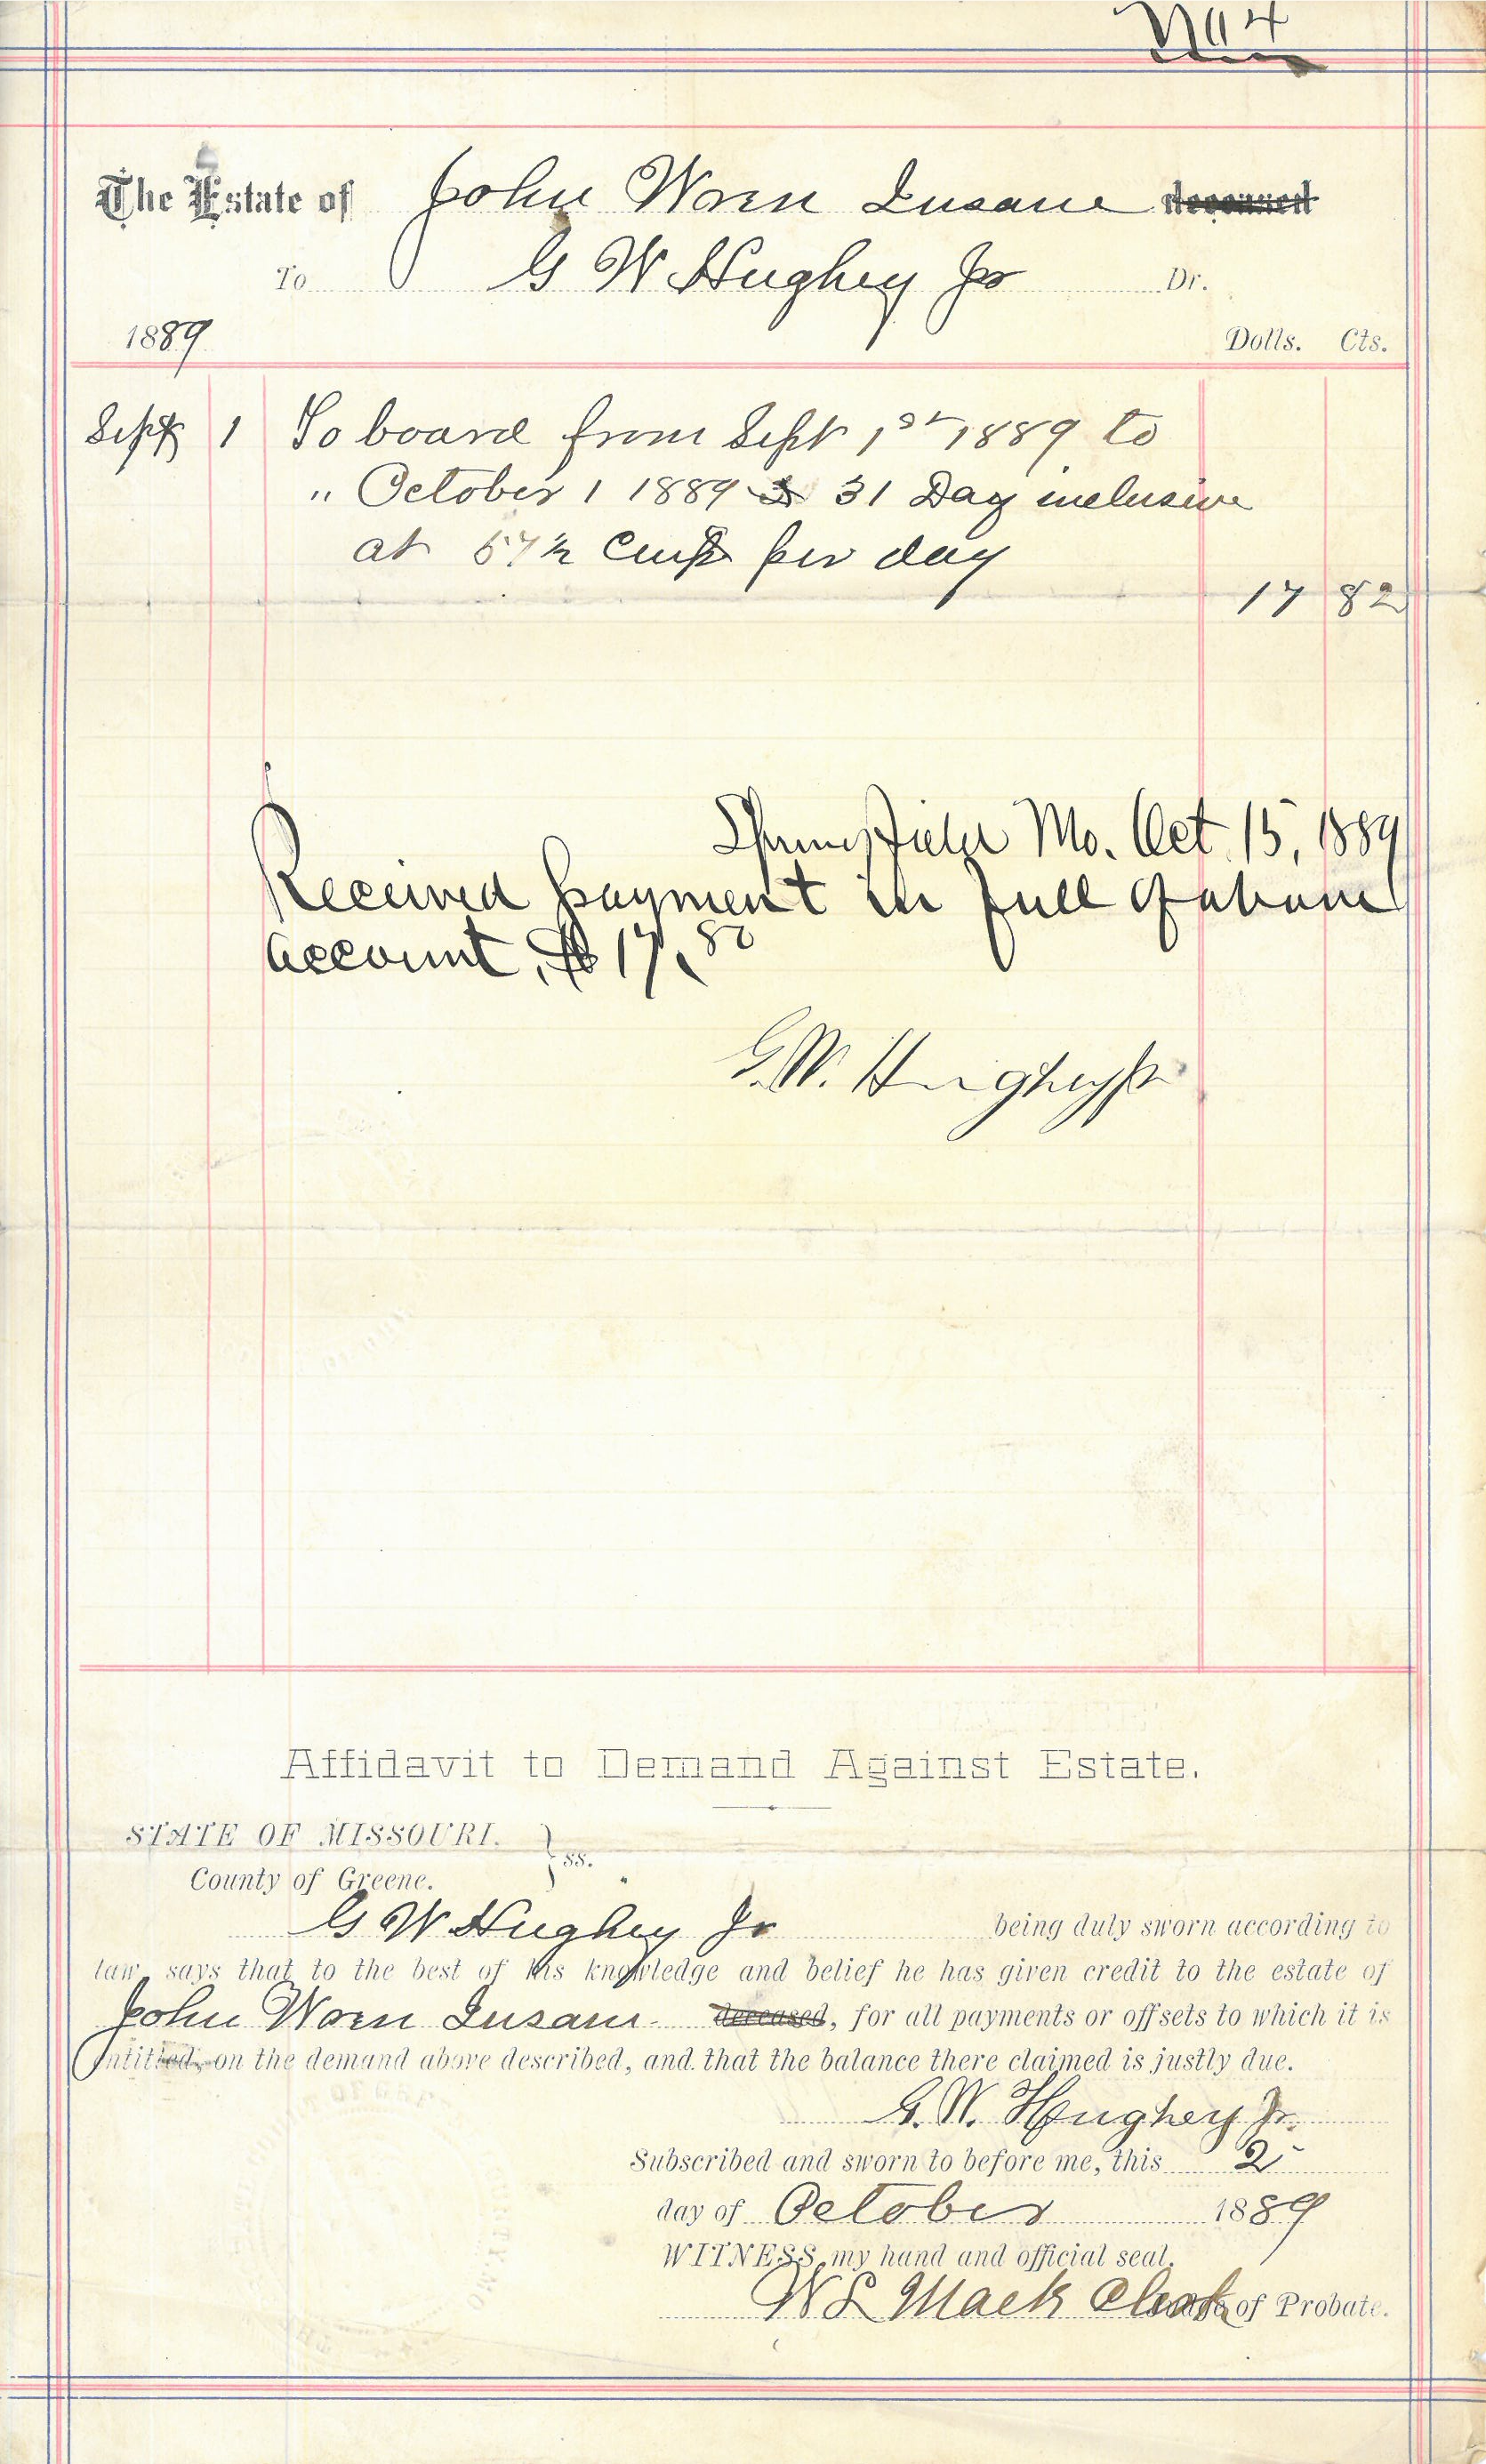 No 4
The Estate of John Woren Insane deceased
To G W Hughey Jr Dr.
1889 Dolls. Cts.
Sept 1 To board from Sept 1st 1889 to
" October 1 1889 31 Day inclusive
at 57½ Cents per day
17 82
Springfield Mo. Oct. 15, 1889
Received payment in full of above
account, $17.82
G.W. Hughey Jr
Affidavit to Demand Against Estate.
STATE OF MISSOURI. } ss.
County of Greene.
G W Hughey Jr being duly sworn according to
law, says that to the best of his knowledge and belief he has given credit to the estate of
John Woren Insane deceased, for all payments or offsets to which it is
entitled, on the demand above described, and that the balance there claimed is justly due.
G. W. Hughey Jr.
Subscribed and sworn to before me, this 2
day of October 1889
WITNESS my hand and official seal.
W L Mack Clerk of Probate.